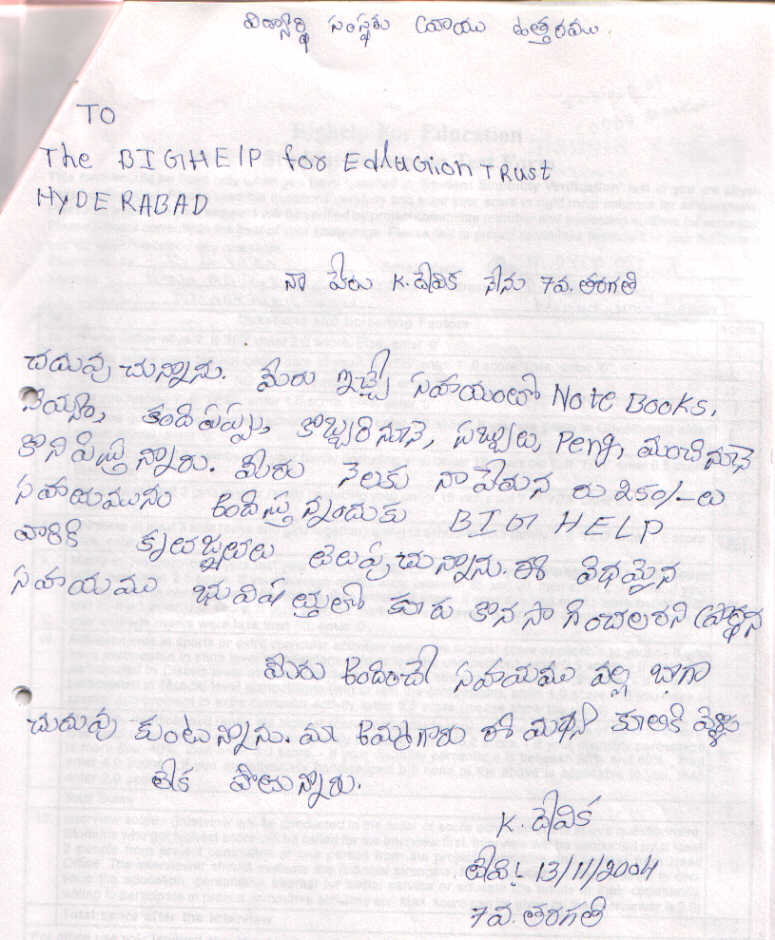 విద్యార్థి సంస్థకు వ్రాయు ఉత్తరము.
TO
The BIGHELP for Education TRust
HYDERABAD
నా పేరు K. దేవిక నేను 7వ. తరగతి
చదువు చున్నాను. మీరు ఇచ్చే సహాయంలో Note Books,
కందిపప్పు, కొబ్బరినూనె, సబ్బులు, Pens, మంచినూనె
కొనిపిస్తున్నారు. మీరు నెలకు నా పేరున రు
సహాయమును అందిస్తున్నందుకు BIG HELP
వారికి కృతజ్ఞతలు తెలుపుచున్నాను. ఈ విధమైన
సహాయము భవిష్యత్తులో కూడ కొనసాగించగలరని ప్రార్థన
మీరు అందించే సహాయము వల్ల బాగా
చదువు కుంటున్నాను. మా అమ్మగారు ఈ మధ్య కూలికి వెళ్ళ
లేక పోతున్నారు.
K. దేవిక
తేది: 13/11/2004
7వ. తరగతి